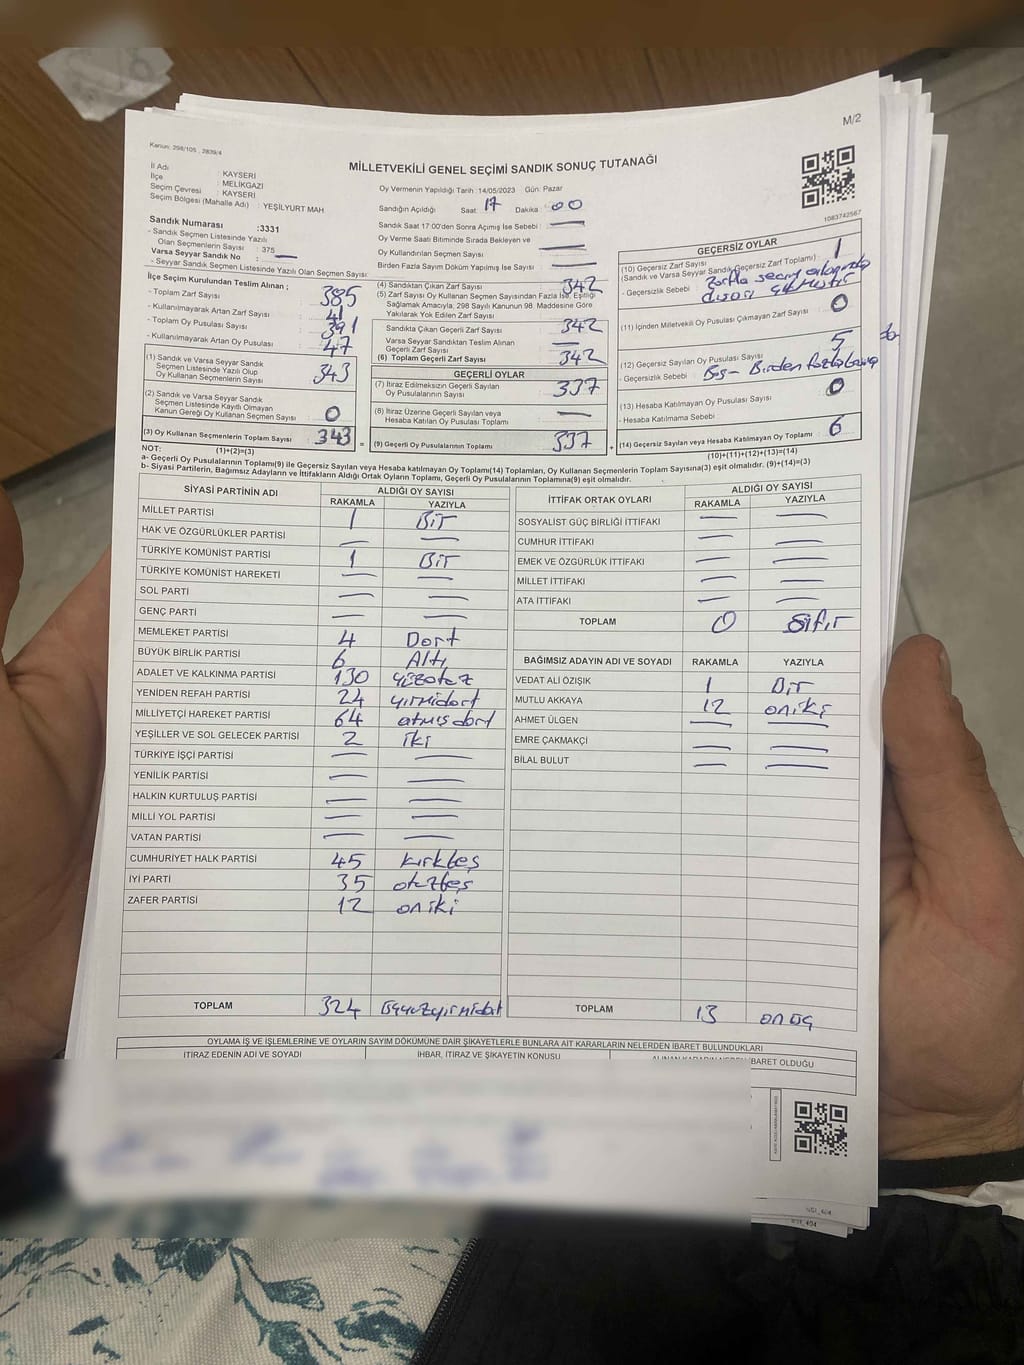 M/2
Kanun: 298/105 , 2839/4
MİLLETVEKİLİ GENEL SEÇİMİ SANDIK SONUÇ TUTANAĞI
İl Adı : KAYSERİ
İlçe : MELİKGAZİ
Seçim Çevresi : KAYSERİ
Seçim Bölgesi (Mahalle Adı) : YEŞİLYURT MAH
Sandık Numarası :3331
- Sandık Seçmen Listesinde Yazılı
Olan Seçmenlerin Sayısı : 375
Varsa Seyyar Sandık No : —
- Seyyar Sandık Seçmen Listesinde Yazılı Olan Seçmen Sayısı:
Oy Vermenin Yapıldığı Tarih :14/05/2023 Gün: Pazar
Sandığın Açıldığı Saat: 17 Dakika : 00
Sandık Saat 17:00'den Sonra Açımış İse Sebebi : —
Oy Verme Saati Bitiminde Sırada Bekleyen ve
Oy Kullandırılan Seçmen Sayısı —
Birden Fazla Sayım Döküm Yapılmış İse Sayısı : —
1083742567
İlçe Seçim Kurulundan Teslim Alınan ;
- Toplam Zarf Sayısı : 385
- Kullanılmayarak Artan Zarf Sayısı : 41
- Toplam Oy Pusulası Sayısı : 391
- Kullanılmayarak Artan Oy Pusulası : 47
(1) Sandık ve Varsa Seyyar Sandık
Seçmen Listesinde Yazılı Olup
Oy Kullanan Seçmenlerin Sayısı : 343
(2) Sandık ve Varsa Seyyar Sandık
Seçmen Listesinde Kaydı Olmayan
Kanun Gereği Oy Kullanan Seçmen Sayısı : 0
(3) Oy Kullanan Seçmenlerin Toplam Sayısı : 343 =
(1)+(2)=(3)
(4) Sandıktan Çıkan Zarf Sayısı : 342
(5) Zarf Sayısı Oy Kullanan Seçmen Sayısından Fazla İse, Eşitliği
Sağlamak Amacıyla, 298 Sayılı Kanunun 98. Maddesine Göre
Yakılarak Yok Edilen Zarf Sayısı :
Sandıkta Çıkan Geçerli Zarf Sayısı : 342
Varsa Seyyar Sandıktan Teslim Alınan
Geçerli Zarf Sayısı : —
(6) Toplam Geçerli Zarf Sayısı : 342
GEÇERLİ OYLAR
(7) İtiraz Edilmeksizin Geçerli Sayılan
Oy Pusulalarının Sayısı : 337
(8) İtiraz Üzerine Geçerli Sayılan veya
Hesaba Katılan Oy Pusulaları Toplamı : —
(9) Geçerli Oy Pusulalarının Toplamı : 337 +
GEÇERSİZ OYLAR
(10) Geçersiz Zarf Sayısı : 1
(Sandık ve Varsa Seyyar Sandık Geçersiz Zarf Toplamı)
- Geçersizlik Sebebi : Zarfla seçim
dışarı
(11) İçinden Milletvekili Oy Pusulası Çıkmayan Zarf Sayısı : 0
(12) Geçersiz Sayılan Oy Pusulası Sayısı : 5
- Geçersizlik Sebebi : Boş - Birden fazla
(13) Hesaba Katılmayan Oy Pusulası Sayısı : 0
- Hesaba Katılmama Sebebi :
(14) Geçersiz Sayılan veya Hesaba Katılmayan Oy Toplamı : 6
(10)+(11)+(12)+(13)=(14)
NOT:
a- Geçerli Oy Pusulalarının Toplamı(9) ile Geçersiz Sayılan veya Hesaba katılmayan Oy Toplam(14) Toplamları, Oy Kullanan Seçmenlerin Toplam Sayısına(3) eşit olmalıdır. (9)+(14)=(3)
b- Siyasi Partilerin, Bağımsız Adayların ve İttifakların Aldığı Ortak Oyların Toplamı, Geçerli Oy Pusulalarının Toplamına(9) eşit olmalıdır.
SİYASİ PARTİNİN ADI ALDIĞI OY SAYISI
RAKAMLA YAZIYLA
MİLLET PARTİSİ 1 Bir
HAK VE ÖZGÜRLÜKLER PARTİSİ — —
TÜRKİYE KOMÜNİST PARTİSİ 1 Bir
TÜRKİYE KOMÜNİST HAREKETİ — —
SOL PARTİ — —
GENÇ PARTİ — —
MEMLEKET PARTİSİ 4 Dört
BÜYÜK BİRLİK PARTİSİ 6 Altı
ADALET VE KALKINMA PARTİSİ 130 yüzotuz
YENİDEN REFAH PARTİSİ 24 yirmidört
MİLLİYETÇİ HAREKET PARTİSİ 64 atmışdört
YEŞİLLER VE SOL GELECEK PARTİSİ 2 iki
TÜRKİYE İŞÇİ PARTİSİ — —
YENİLİK PARTİSİ — —
HALKIN KURTULUŞ PARTİSİ — —
MİLLİ YOL PARTİSİ — —
VATAN PARTİSİ — —
CUMHURİYET HALK PARTİSİ 45 kırkbeş
İYİ PARTİ 35 otuzbeş
ZAFER PARTİSİ 12 oniki
TOPLAM 324 üçyüzyirmidört
İTTİFAK ORTAK OYLARI ALDIĞI OY SAYISI
RAKAMLA YAZIYLA
SOSYALİST GÜÇ BİRLİĞİ İTTİFAKI — —
CUMHUR İTTİFAKI — —
EMEK VE ÖZGÜRLÜK İTTİFAKI — —
MİLLET İTTİFAKI — —
ATA İTTİFAKI — —
TOPLAM 0 Sıfır
BAĞIMSIZ ADAYIN ADI VE SOYADI RAKAMLA YAZIYLA
VEDAT ALİ ÖZIŞIK 1 Bir
MUTLU AKKAYA 12 oniki
AHMET ÜLGEN — —
EMRE ÇAKMAKÇİ — —
BİLAL BULUT — —
TOPLAM 13 onüç
OYLAMA İŞ VE İŞLEMLERİNE VE OYLARIN SAYIM DÖKÜMÜNE DAİR ŞİKAYETLERLE BUNLARA AİT KARARLARIN NELERDEN İBARET BULUNDUKLARI
İTİRAZ EDENİN ADI VE SOYADI İHBAR, İTİRAZ VE ŞİKAYETİN KONUSU ALINAN KARARIN NEDEN İBARET OLDUĞU